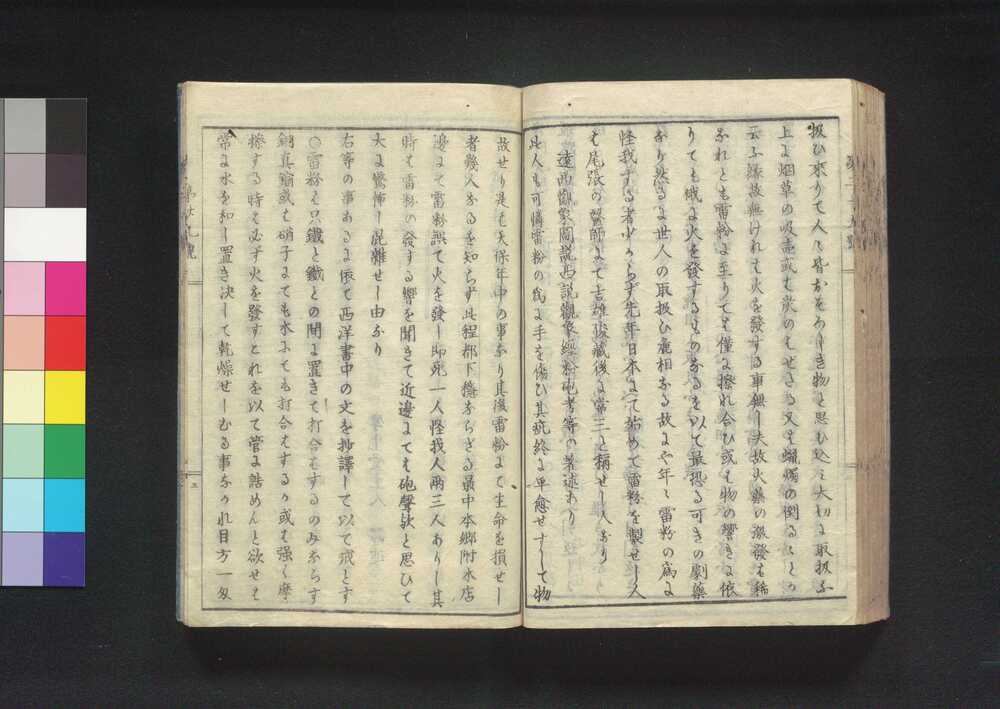 扱ひ來りて人々皆おそろしき物と思ひ込ミ大切に取扱ふ
上に烟草の吸壳或は炭のはせる又は蝋燭の倒るゝとの
云ふ縁故無けれは火を發する事無し夫故火藥の激發は稀
なれとも雷粉に至りては僅に擦れ合ひ或は物の響きに依
りても俄に火を發するものなるを以て最恐る可きの劇藥
なり然るに世人の取扱ひ麁相なる故にや年々雷粉の爲に
怪我する者少からす先年日本にて始めて雷粉を製せし人
は尾張の醫師にて吉雄俊藏後に常三と稱せし人なり
遠西觀象圖説西説觀象經粉砲考等の著述あり
此人も可憐雷粉の爲に手を傷ひ其疵終に平愈せすして物
故せり是は天保年中の事なり其後雷粉にて生命を損せし
者幾人なるを知らす此程都下穩ならさる最中本郷附木店
邊にて雷粉誤て火を發し即死一人怪我人兩三人ありし其
時は雷粉の發する響を聞きて近邊にては砲聲欤と思ひて
大に驚怖し混雜せし由なり
右等の事あるに依て西洋書中の文を抄譯して以て戒とす
○雷粉は只鐵と鐵との間に置きて打合はするのみならす
銅真鍮或は硝子にても木にても打合はするか或は強く摩
擦する時は必す火を發すこれを以て管に詰めんと欲せは
常に水を和し置き決して乾燥せしむる事なかれ目方一匁